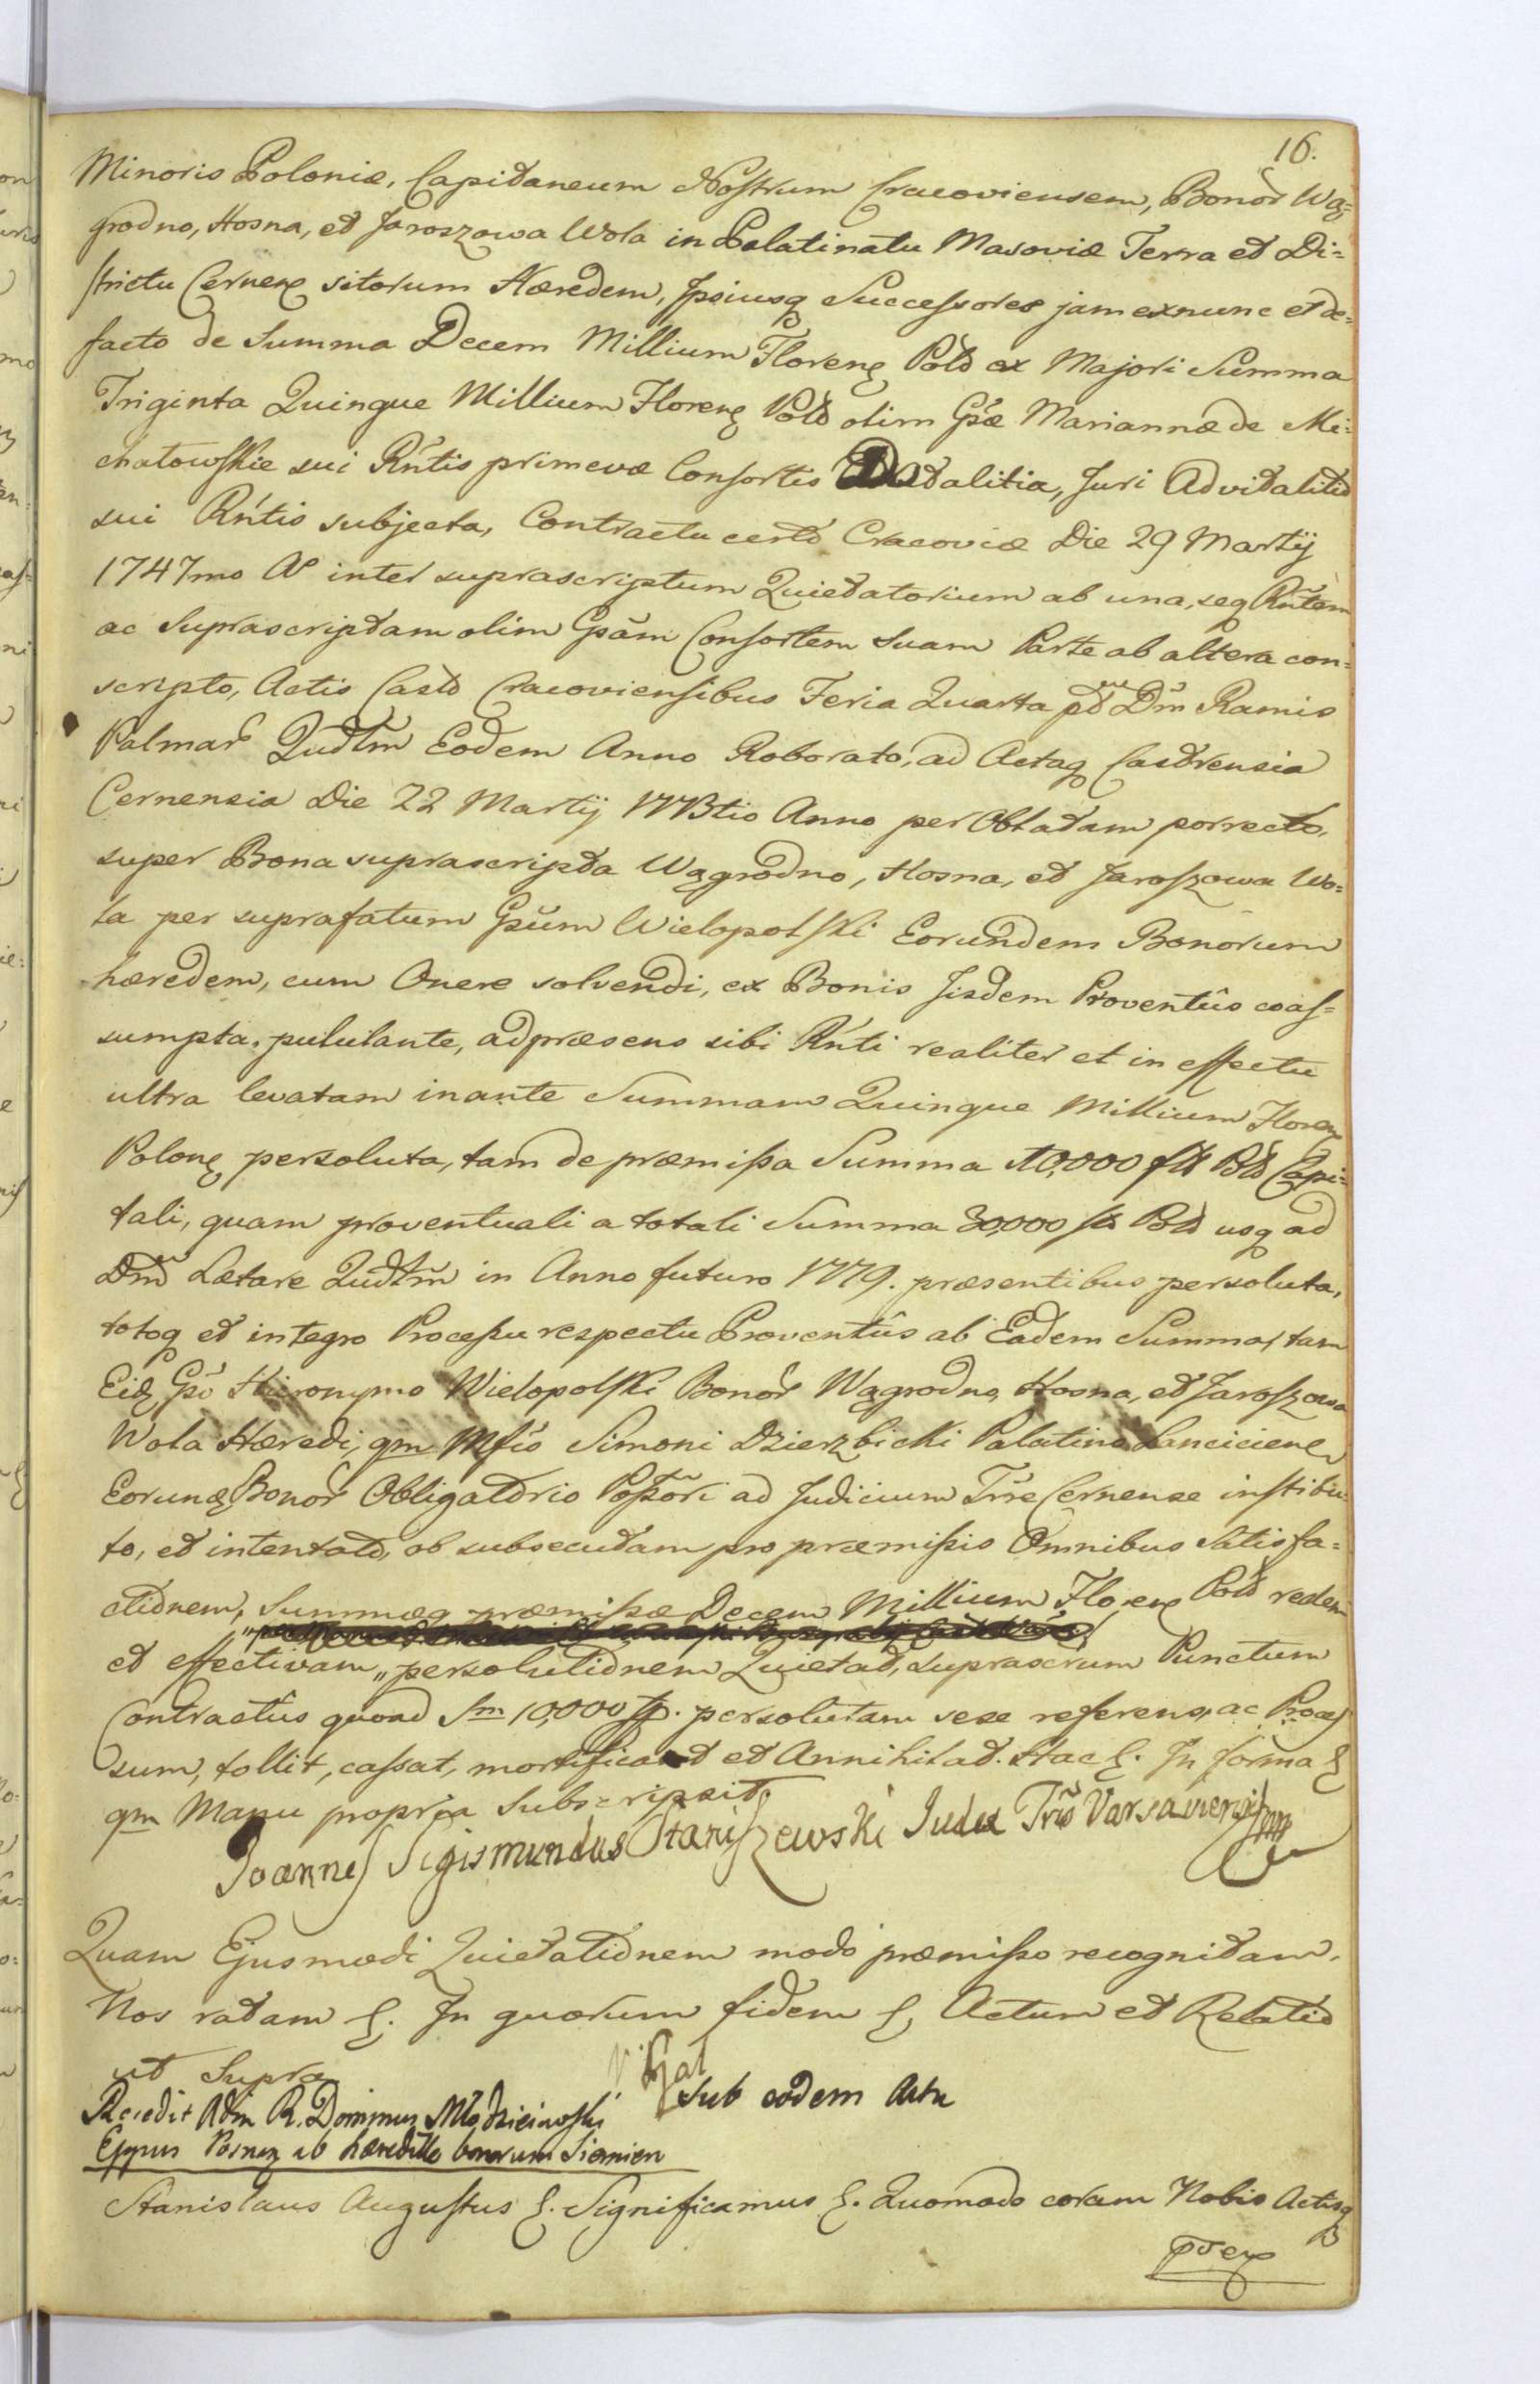 16.
Minoris Poloniæ, Capitaneum Nostrum Cracoviensem, Bonor̃ Wą=
grodno, Hosna, et Jaroszowa Wola in Palatinatu Masoviæ Terra et Di=
strictu Cernen sitorum Hæredem, Ipsiusq Successores jam exnunc et de=
facto de Summa Decem Millium Floren Pold ex Majori Summa
Triginta Quinque Millium Floren Pold olim Gsæ Mariannæ de Mi=
chałowskie sui Rñtis primevæ Consortis Dotalitia, Juri Advitalitio
sui Rñtis subjecta, Contractu certo Cracoviæ Die 29 Martij
1747mo Ao inter suprascriptum Quietatorium ab una, seq Rñtem
ac Suprascriptam olim Gsam Consortem Suam Parte ab altera con=
scripto, Actis Casto Cracoviensibus Feria Quarta pt Dm̃ Ramis
Palmar̃ Qudtm̃ Eodem Anno Roborato, ad Actaq Castrensia
Cernensia Die 22 Martij 1773tio Anno per Oblatam porrecto,
super Bona suprascripta Wągrodno, Hosna, et Jaroszowa Wo=
la per suprafatum Gsum Wielopolski Eorundem Bonorum
hæredem, cum Onere solvendi, ex Bonis Iisdem Proventûs coas=
sumpta, pululante, ad præsens sibi Rñti realiter et in effectu
ultra levatam inante Summam Quinque Millium Floren
Polon persoluta, tam de præmissa Summa 10,000 fls Pld Capi=
tali, quam proventuali a totali Summa 30,000 fls Pold usq ad
Dm̃ Lætare Qudtm̃ in Anno futuro 1779. præsentibus persoluta,
totoq et integro Processu respectu Proventûs ab Eadem Summa, tam
Eid Gso Hieronymo Wielopolski Bonor̃ Wągrodno, Hosna, et Jaroszowa
Wola Hæredi, qm Mfco Simoni Dzierzbicki Palatino Lancicien
Eorund Bonor̃ Obligatorio Possori ad Judicium Trre Cernense institu=
to, et intentato, ob subsecutam pro præmissis Omnibus Satisfa=
ctionem, Summæq præmissæ Decem Millium Floren Pold realem
et effectivam „ persolutionem Quietat, suprascrum Punctum
Contractûs quoad Sm 10,000 fp. persolutam sese referens, ac Proces
sum, tollit, cassat, mortificat et Annihilat. Hac &. In forma &
qm Manu propria Subscripsit.
Joannes Sigismundus Staniszewski Judex Tris Varsaviensis mp
Quam Ejusmodi Quietationem modo præmisso recognitam,
Nos ratam &. In quorum fidem &, Actum et Relatio
ut Supra
Sub eodem Actu
Recedit Adm R. Dominus Młodzieiowski
Eppus Posnan ab hæreditte bonorum Siemien
Stanislaus Augustus &. Significamus &. Quomodo coram Nobis Actisq